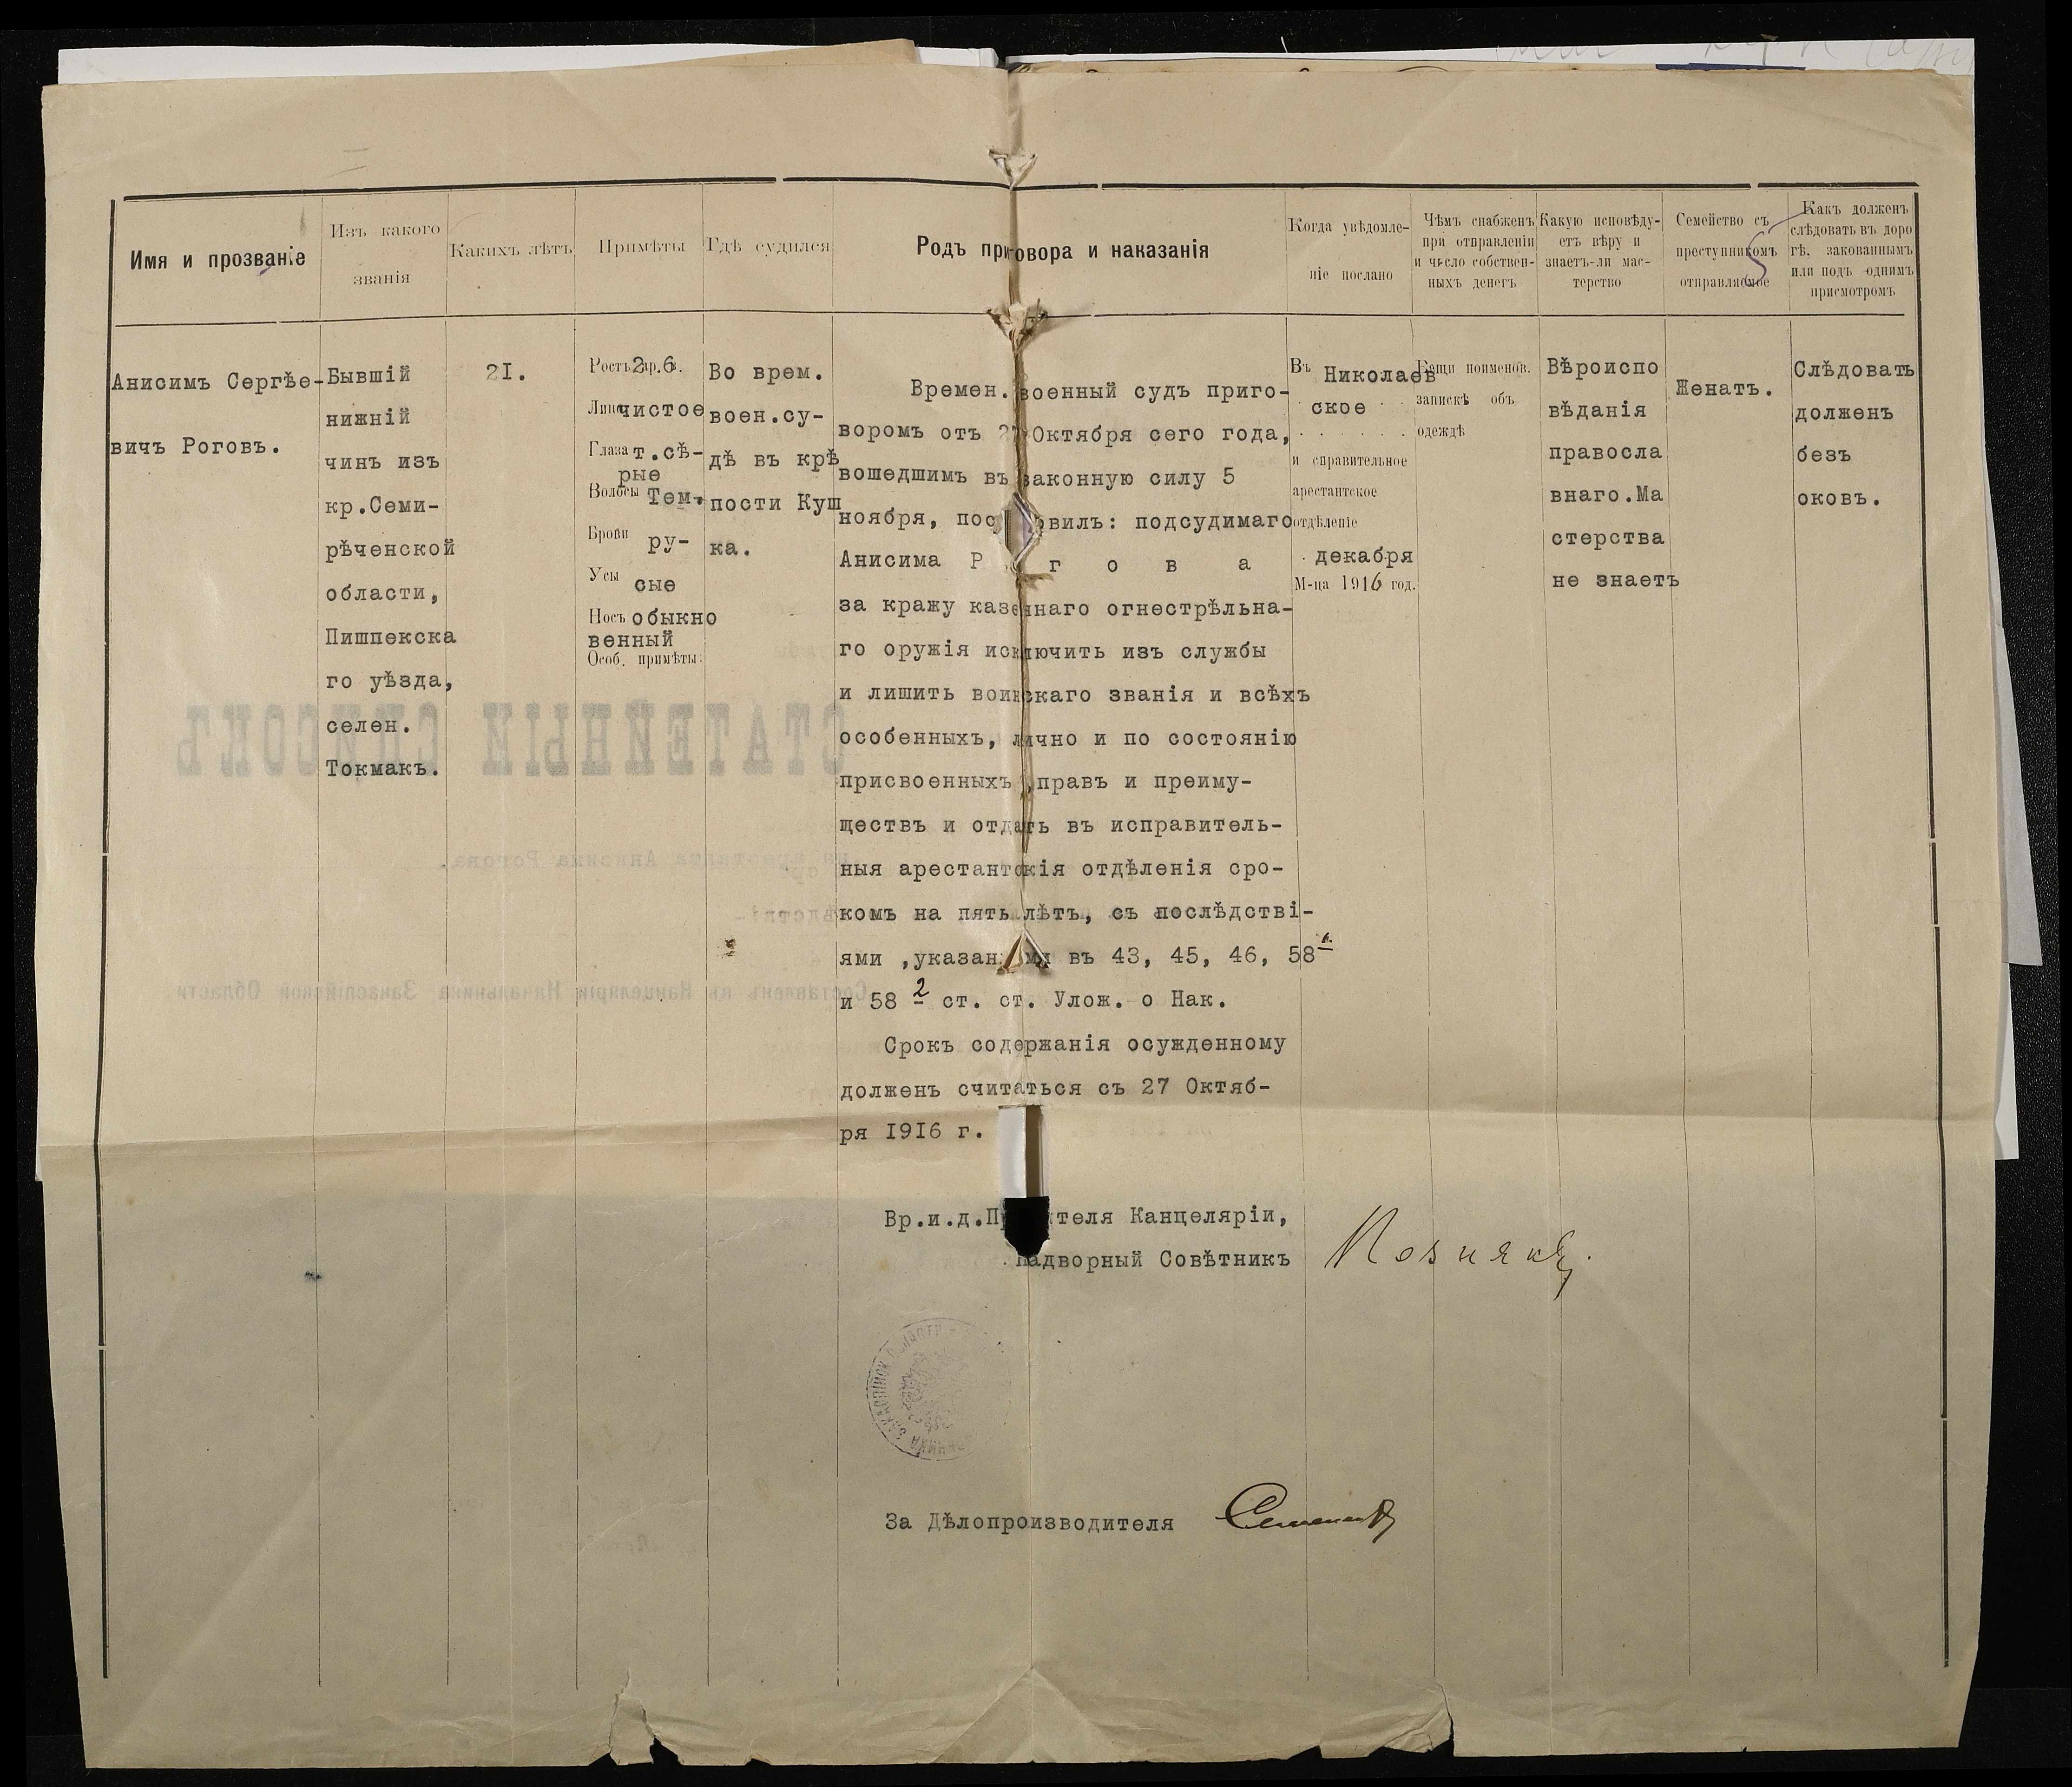 Имя и прозваніе
Изъ какого
званія
Какихъ лѣтъ
Примѣты
Гдѣ судился
Родъ приговора и наказанія
Когда увѣдомле-
ніе послано
Чѣмъ снабженъ
при отправленіи
и число собствен-
ныхъ денегъ
Какую исповѣду-
етъ вѣру и
знаетъ-ли мас-
терство
Семейство съ
преступникомъ
отправляемое
Какъ долженъ
слѣдовать въ доро
гѣ, закованнымъ
или подъ однимъ
присмотромъ
Анисимъ Сергѣе-
вичъ Роговъ.
Бывшій
нижній
чинъ изъ
кр.Семи-
рѣченской
области,
Пишпекска
го уѣзда,
селен.
Токмакъ.
21.
Ростъ 2 ар. 6
Лицо чистое
Глаза т.сѣ-
рые
Волосы Тем.
Брови ру-
Усы сые
Носъ обыкно
венный
Особ. примѣты:
Во врем.
воен.су-
дѣ въ крѣ
пости Куш
ка.
Времен. военный судъ приго-
воромъ отъ 27 Октября сего года,
вошедшимъ въ законную силу 5
ноября, пос овилъ: подсудимаго
Анисима Р о г о в а
за кражу казеннаго огнестрѣльна-
го оружія исключить изъ службы
и лишить воинскаго званія и всѣхъ
особенныхъ, лично и по состоянію
присвоенныхъ, правъ и преиму-
ществъ и отдать въ исправитель-
ныя арестантскія отдѣленія сро-
комъ на пять лѣтъ, съ послѣдстві-
ями ,указанными въ 43, 45, 46, 58
и 58 2 ст. ст. Улож. о Нак.
Срокъ содержанія осужденному
долженъ считаться съ 27 Октяб-
ря 1916 г.
Въ Николаев
ское
и справительное
арестантское
отдѣленіе
декабря
М-ца 1916 год.
Вещи поименов.
запискѣ объ
одеждѣ
Вѣроиспо
вѣданія
правосла
внаго.Ма
стерства
не знаетъ
Женатъ.
Слѣдовать
долженъ
безъ
оковъ.
СТАТЕЙНЫЙ СПИСОКЪ
на арестанта Анисима Рогова.
Составленъ въ Канцеляріи Начальника Закаспійской Области
Вр.и.д.П теля Канцеляріи,
Надворный Совѣтникъ Познякъ.
За Дѣлопроизводителя